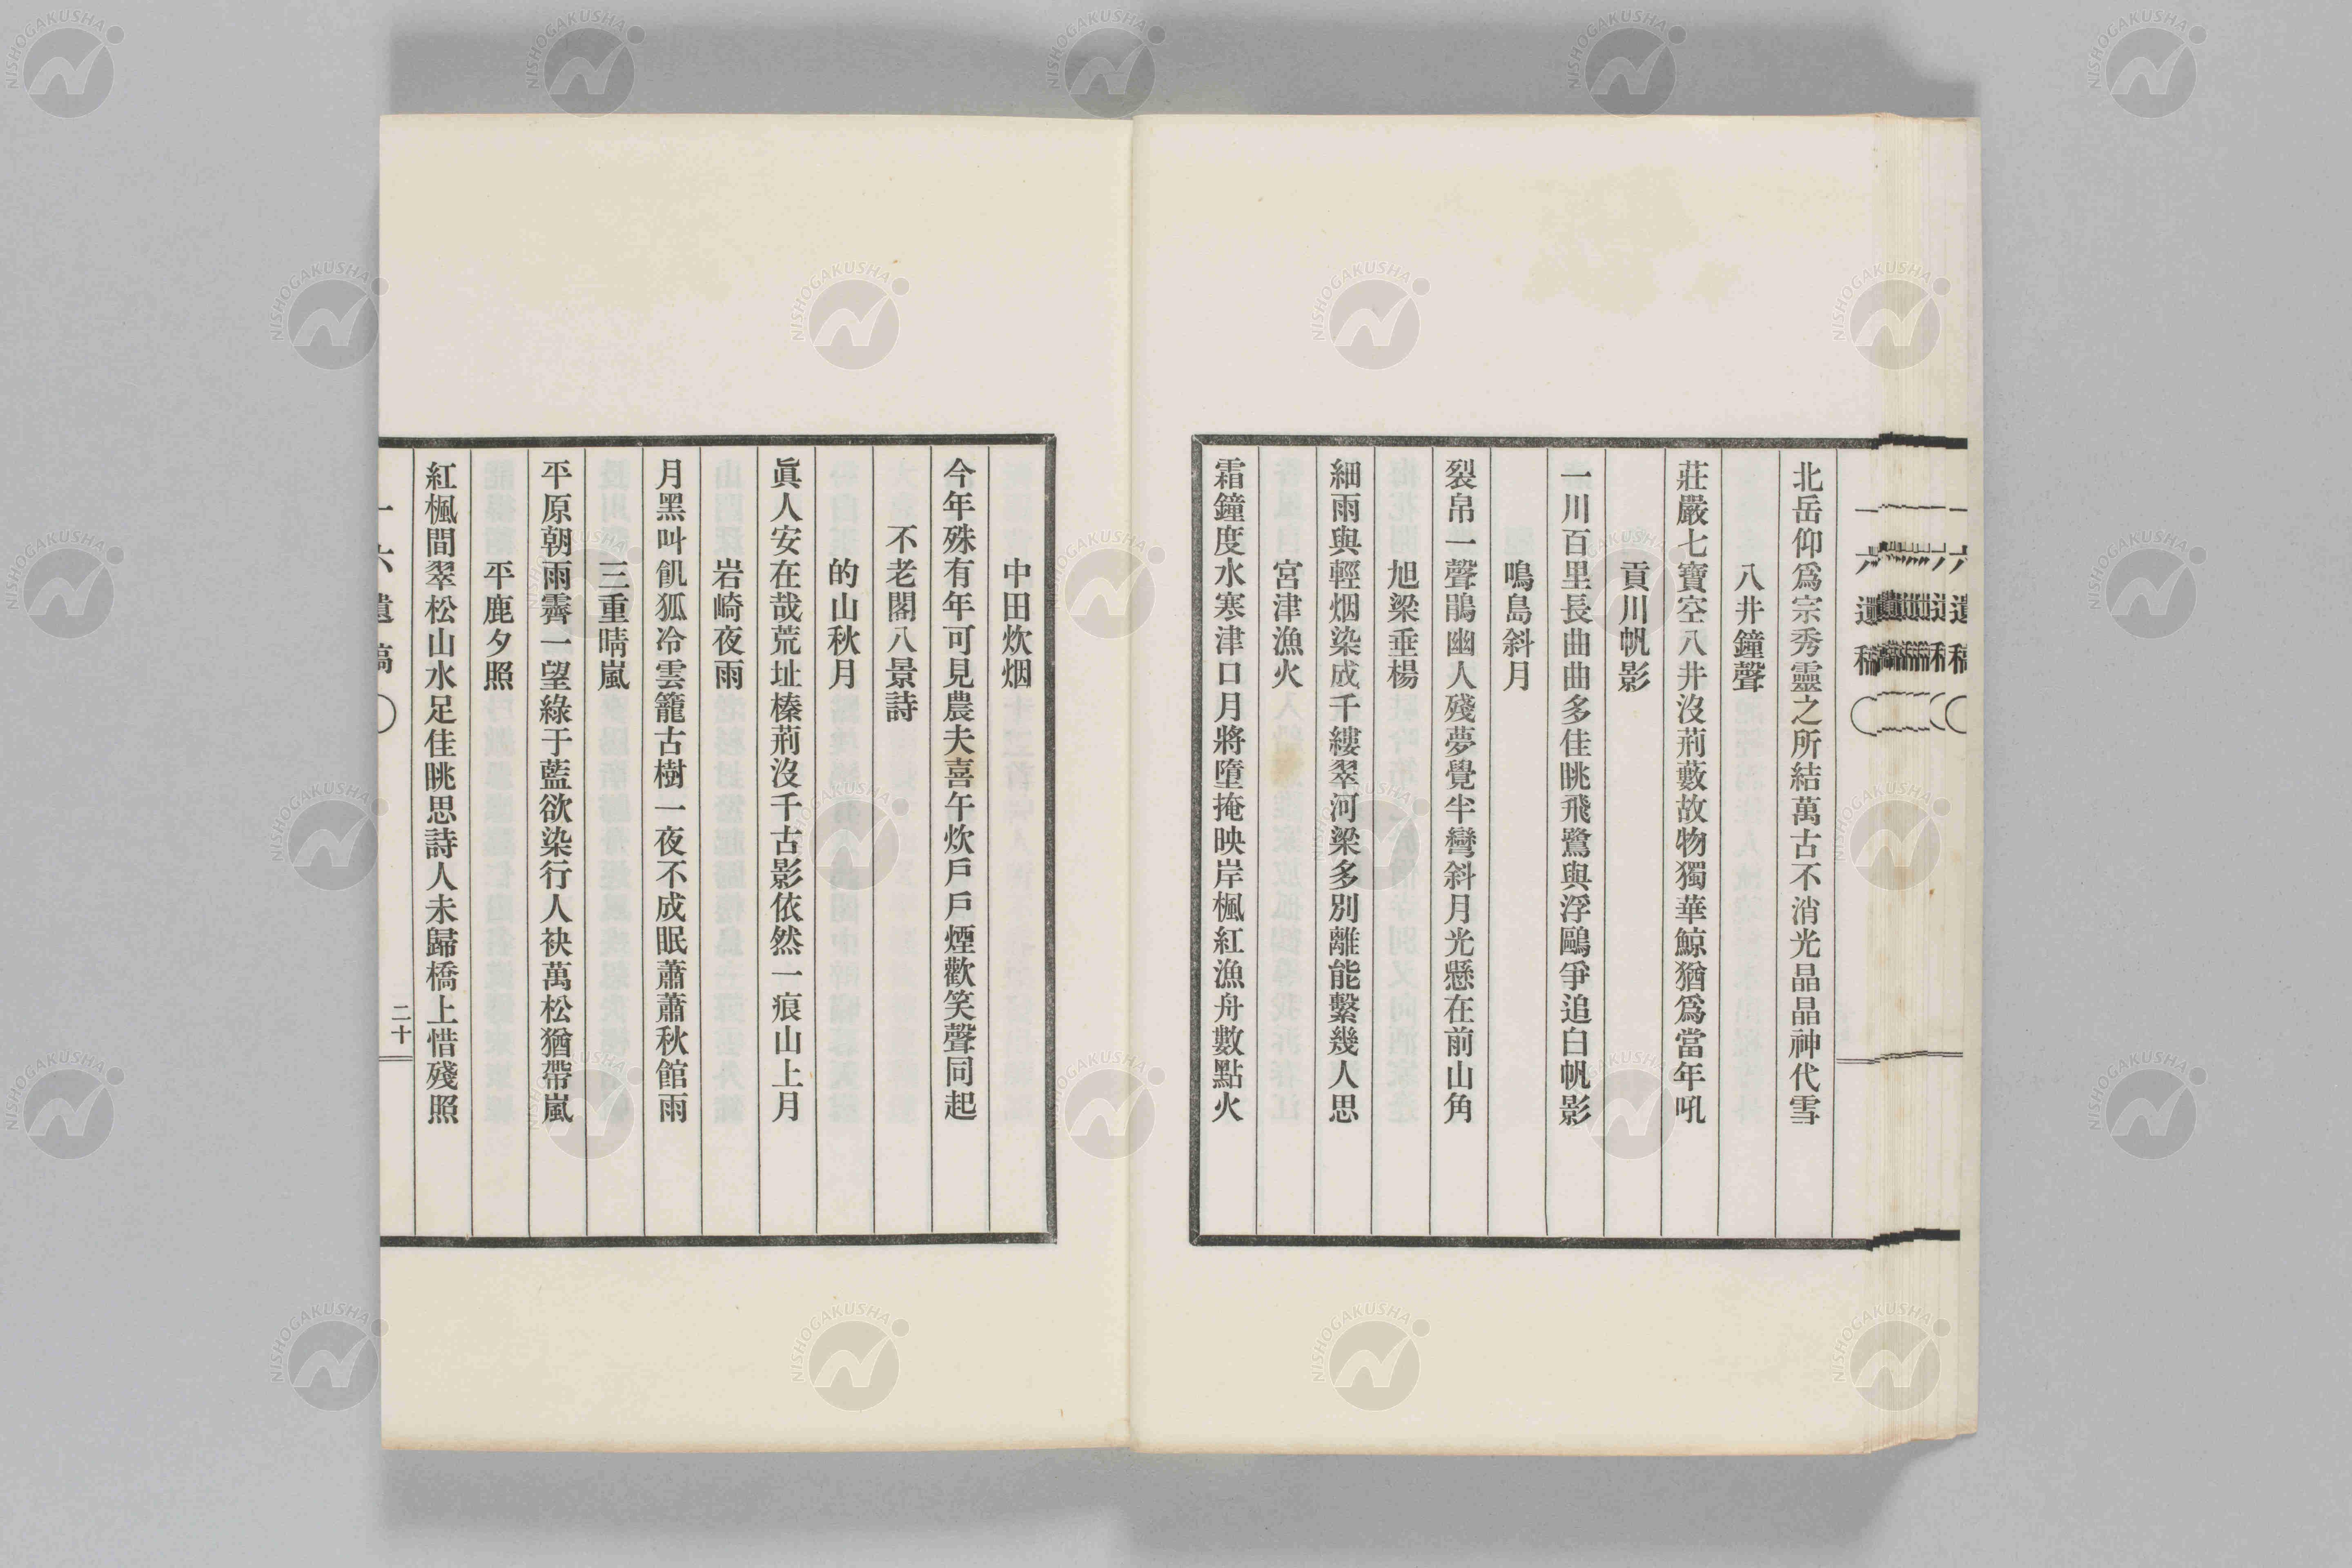 北岳仰爲宗秀靈之所結萬古不消光晶晶神代雪
八井鐘聲
莊嚴七寶空八井沒荊藪故物獨華鯨猶爲當年吼
貢川帆影
一川百里長曲曲多佳眺飛鷺與浮鷗爭追白帆影
鳴島斜月
裂帛一聲鵑幽人殘夢覺半彎斜月光懸在前山角
旭梁垂楊
細雨與輕烟染成千縷翠河梁多別離能繫幾人思
宮津漁火
霜鐘度水寒津口月將墮掩映岸楓紅漁舟數點火
中田炊烟
今年殊有年可見農夫喜午炊戶戶煙歡笑聲同起
不老閣八景詩
的山秋月
眞人安在哉荒址榛荊沒千古影依然一痕山上月
岩崎夜雨
月黑叫飢狐冷雲籠古樹一夜不成眠蕭蕭秋館雨
三重晴嵐
平原朝雨霽一望綠于藍欲染行人袂萬松猶帶嵐
平鹿夕照
紅楓間翠松山水足佳眺思詩人未歸橋上惜殘照
一六遺稿
二十
NISHOGAKUSHA